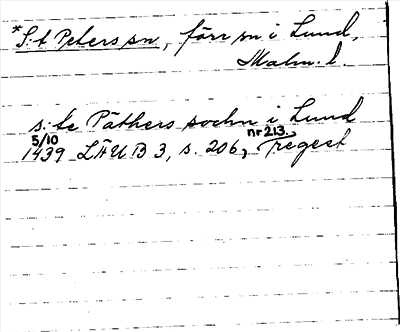 *S:t Peters sn, förr sn i Lund,
Malm. l.
s:te Päthers sochn i Lund
5/10 nr 213.
1439 LÄUB 3, s. 206, regest